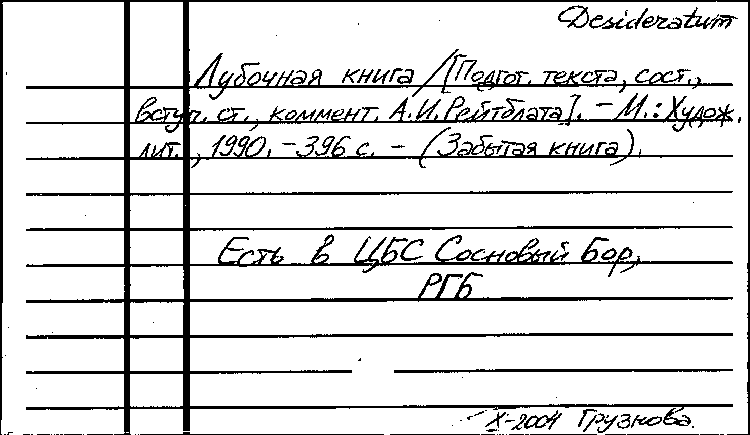 Desideratum
Лубочная книга / [Подгот. текста, сост.,
вступ. ст., коммент. А.И. Рейтблата]. – М.: Худож.
лит., 1990. – 396 с. – (Забытая книга).
Есть в ЦБС Сосновый Бор,
РГБ
X-2004 Грузнова.